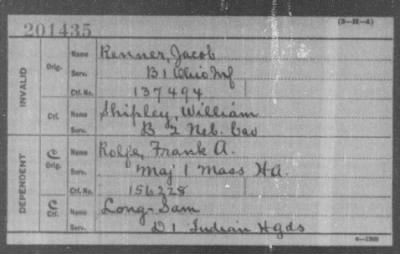 201435
(3-21-A)
INVALID
Orig.
Name Renner, Jacob
Serv. B 1 Ohio Inf
Ctf. No. 137494
Ctf.
Name Shipley, William
Serv. B 2 Neb. Cav
DEPENDENT
C Orig.
Name Rolfe, Frank A.
Serv. Maj 1 Mass HA.
Ctf. No. 156228
C Ctf.
Name Long-Sam
Serv. D 1 Indian Hgds